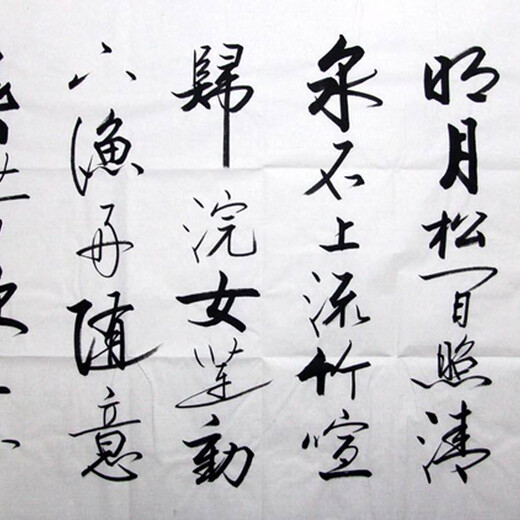 明月松间照清
泉石上流竹喧
歸浣女莲動
下漁舟随意